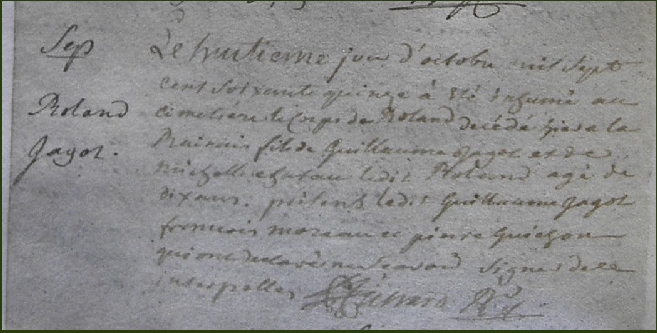 Sep
Roland
Jagot.
Le huitieme jour d'octobre mil sept
cent soixante quinze à été inhumé au
cimetiere le corps de Roland decédé hier a la
fils de Guillaume Jagot et de
ledit Roland agé de
dix ans. présents ledit Guillaume Jagot
francois moreau et pierre Guichon
qui ont declaré ne scavoir signer de ce
interpellés